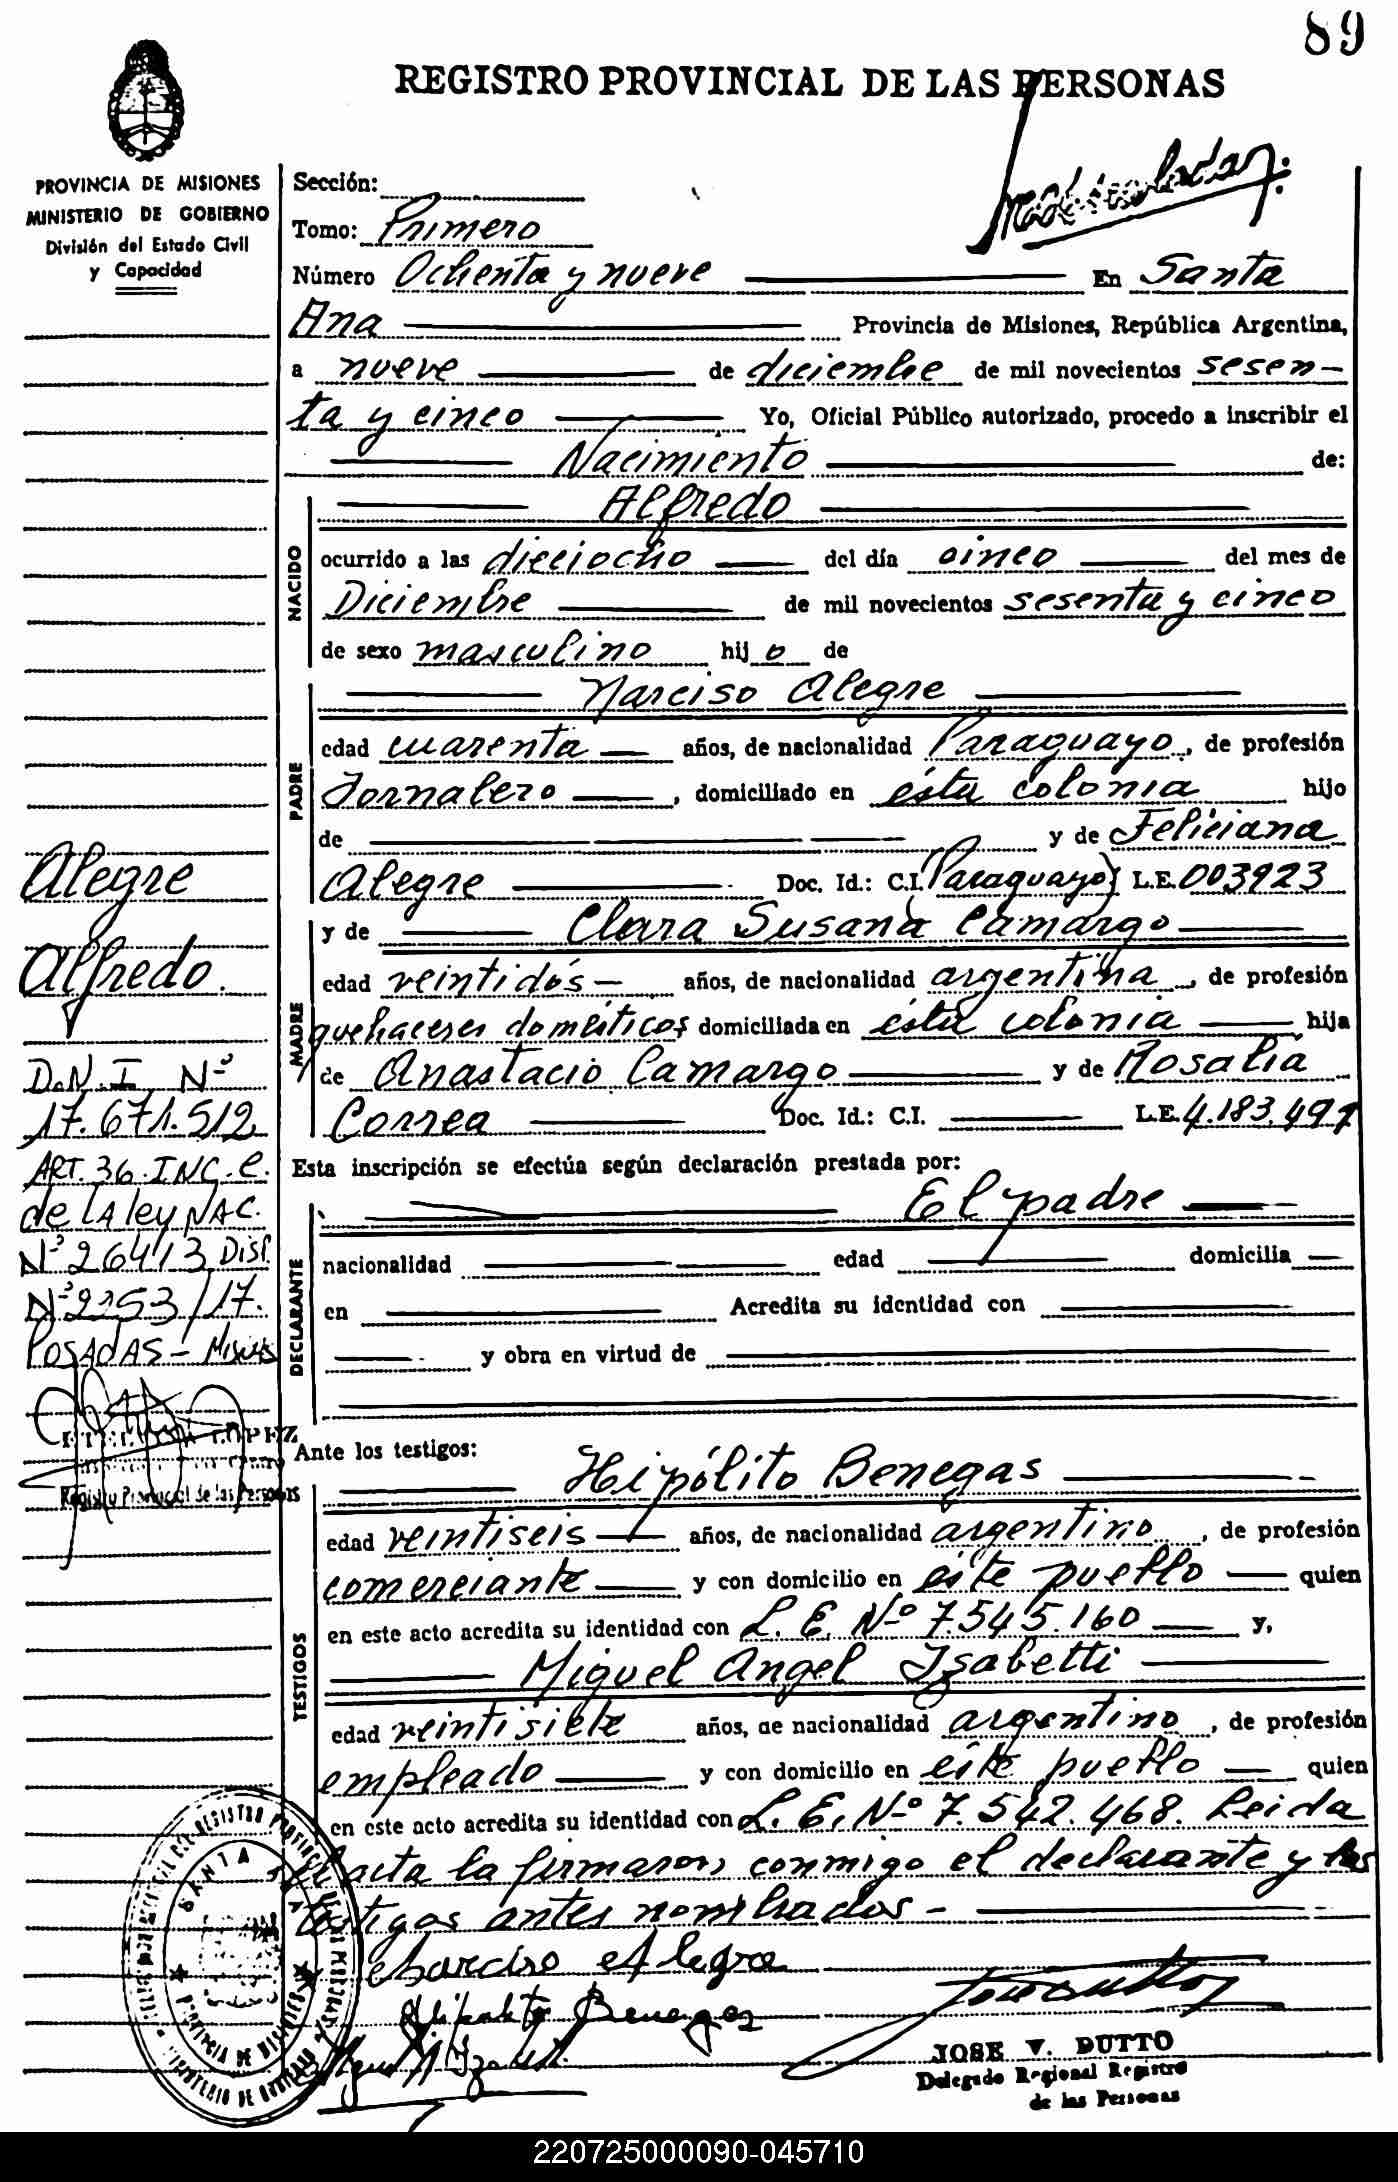 89
REGISTRO PROVINCIAL DE LAS PERSONAS
PROVINCIA DE MISIONES
MINISTERIO DE GOBIERNO
División del Estado Civil
y Capacidad
Sección:
Tomo: Primero
Número Ochenta y nueve En Santa
Ana Provincia de Misiones, República Argentina,
a nueve de diciembre de mil novecientos sesen-
ta y cinco Yo, Oficial Público autorizado, procedo a inscribir el
Nacimiento de:
NACIDO
Alfredo
ocurrido a las dieciocho del día cinco del mes de
Diciembre de mil novecientos sesenta y cinco
de sexo masculino hijo de
PADRE
Narciso Alegre
edad cuarenta años, de nacionalidad Paraguayo, de profesión
Jornalero, domiciliado en ésta colonia hijo
de y de Feliciana
Alegre Doc. Id.: C.I. (Paraguayo) L.E. 003923
MADRE
y de Clara Susana Camargo
edad veintidós- años, de nacionalidad argentina, de profesión
quehaceres domésticos domiciliada en ésta colonia hija
de Anastacio Camargo y de Rosalía
Correa Doc. Id.: C.I. L.E. 4.183.491
Esta inscripción se efectúa según declaración prestada por:
DECLARANTE
El padre
nacionalidad edad domicilia
en Acredita su identidad con
y obra en virtud de
Ante los testigos:
TESTIGOS
Hipólito Benegas
edad veintiseis años, de nacionalidad argentino, de profesión
comerciante y con domicilio en éste pueblo quien
en este acto acredita su identidad con L. E. Nº 7.545.160 y,
Miguel Angel Izabetti
edad veintisiete años, de nacionalidad argentino, de profesión
empleado y con domicilio en éste pueblo quien
en este acto acredita su identidad con L. E. Nº 7.542.468. Leida
el acta la firmaron, conmigo el declarante y los
testigos antes nombrados -
Narciso Alegre
Hipolito Benegas
JOSE V. DUTTO
Delegado Regional Registro
de las Personas
Alegre
Alfredo.
D.N.I. Nº
17.671.512
ART. 36. INC. e.
de LA ley NAC.
Nº 26413 DISP.
Nº 2253/17.
POSADAS - Mises
LOPEZ
Registro Provincial de las Personas
SANTA ANA
PROVINCIA DE MISIONES
220725000090-045710